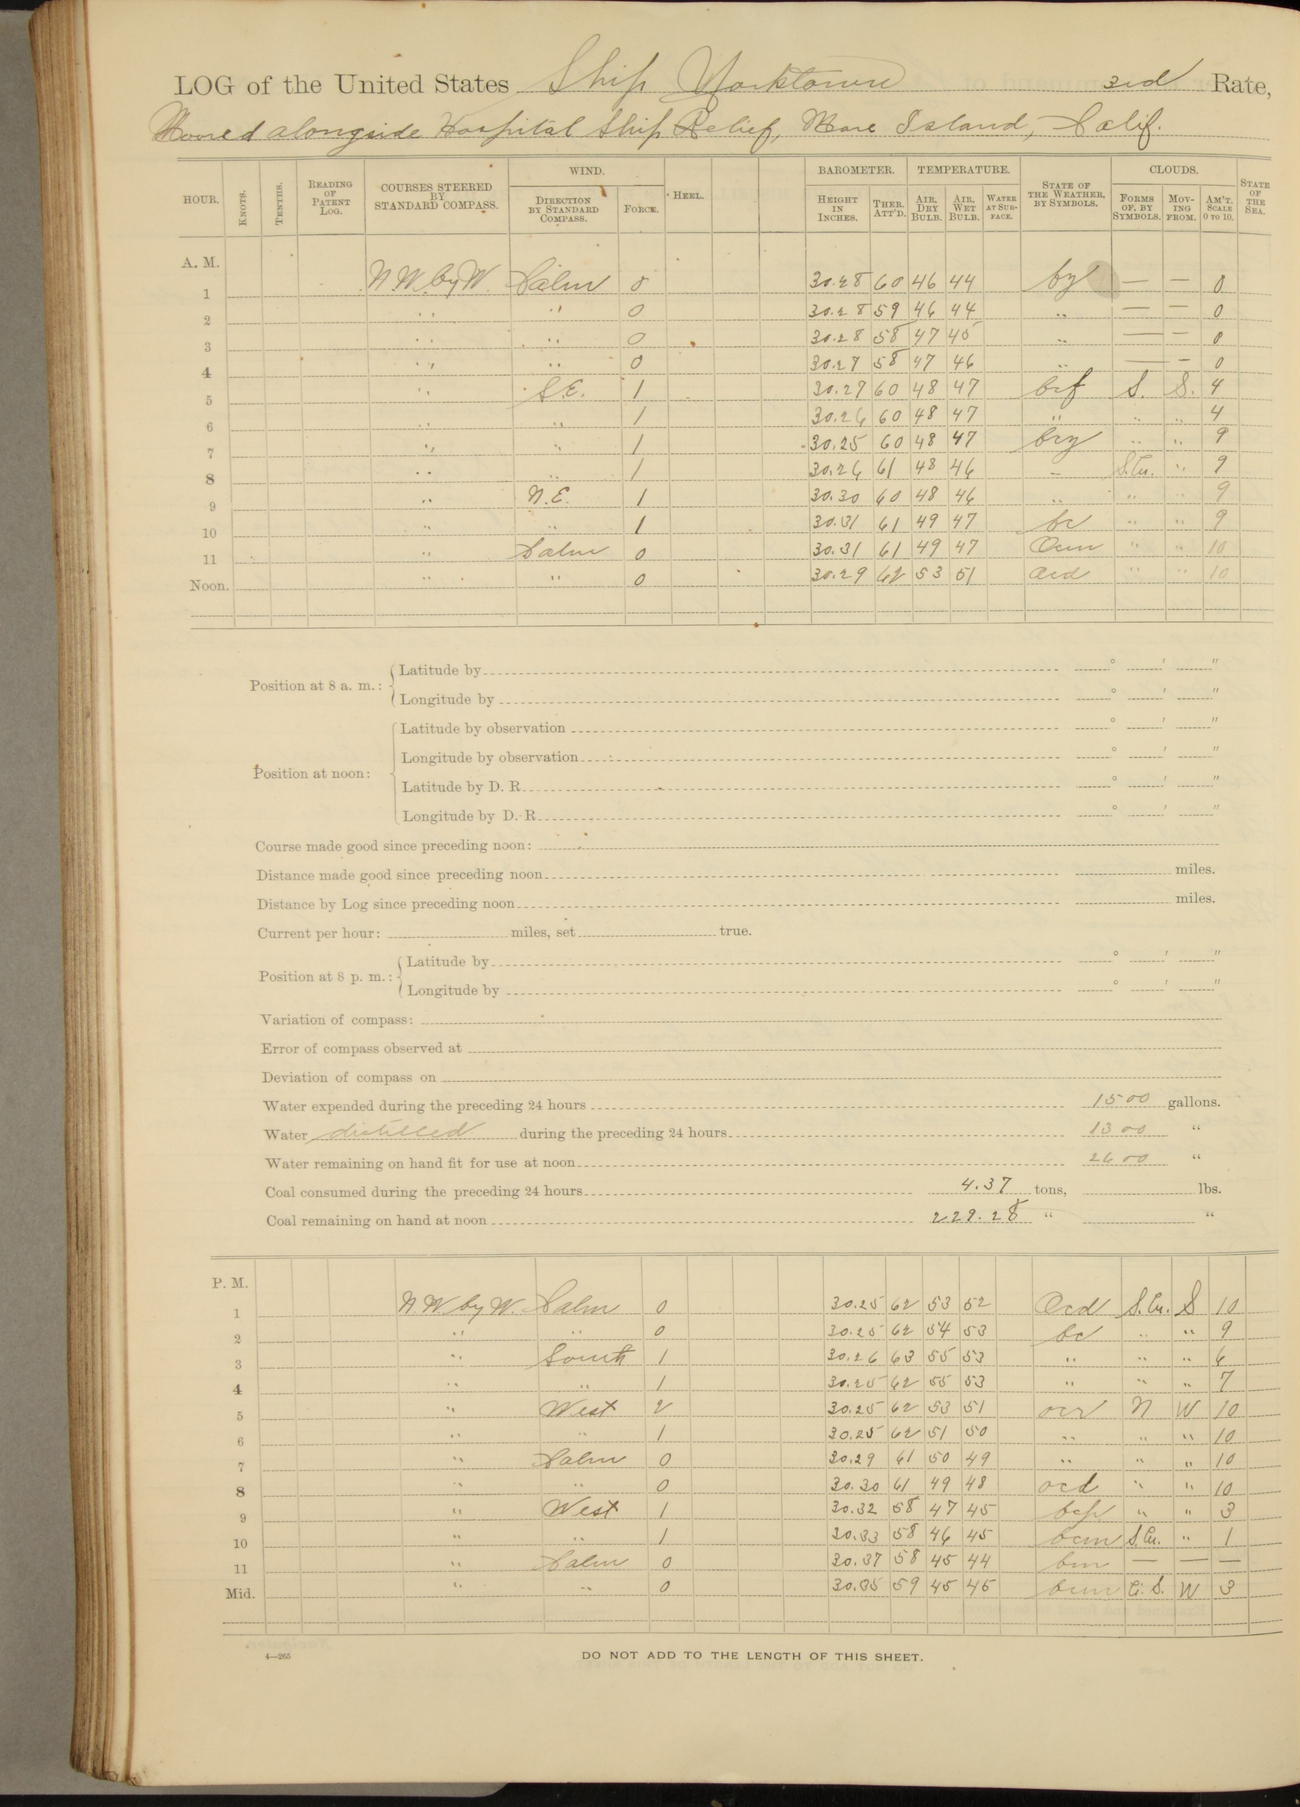 LOG of the United States Ship Yorktown 3rd Rate,
Moored alongside Hospital Ship Relief, Mare Island, Calif.
HOUR. KNOTS. TENTHS. READING OF PATENT LOG. COURSES STEERED BY STANDARD COMPASS. WIND. DIRECTION BY STANDARD COMPASS. FORCE. HEEL. BAROMETER. HEIGHT IN INCHES. THER. ATT'D. TEMPERATURE. AIR, DRY BULB. AIR, WET BULB. WATER AT SURFACE. STATE OF THE WEATHER, BY SYMBOLS. CLOUDS. FORMS OF, BY SYMBOLS. MOVING FROM. AM'T. SCALE 0 TO 10. STATE OF THE SEA.
A. M.
1 N.W. by W. Calm 0 30.28 60 46 44 by — — 0
2 " " 0 30.28 59 46 44 " — — 0
3 " " 0 30.28 58 47 45 " — — 0
4 " " 0 30.27 58 47 46 " — — 0
5 " S.E. 1 30.27 60 48 47 bcf S. S. 4
6 " " 1 30.26 60 48 47 " " " 4
7 " " 1 30.25 60 48 47 bcy " " 9
8 " " 1 30.26 61 48 46 " S.Cu. " 9
9 " N.E. 1 30.30 60 48 46 " " " 9
10 " " 1 30.31 61 49 47 bc " " 9
11 " Calm 0 30.31 61 49 47 Ocm " " 10
Noon. " " 0 30.29 62 53 51 Ocd " " 10
Position at 8 a. m.: Latitude by ° ' "
Longitude by ° ' "
Position at noon: Latitude by observation ° ' "
Longitude by observation ° ' "
Latitude by D. R. ° ' "
Longitude by D. R. ° ' "
Course made good since preceding noon:
Distance made good since preceding noon miles.
Distance by Log since preceding noon miles.
Current per hour: miles, set true.
Position at 8 p. m.: Latitude by ° ' "
Longitude by ° ' "
Variation of compass:
Error of compass observed at
Deviation of compass on
Water expended during the preceding 24 hours 1500 gallons.
Water distilled during the preceding 24 hours 1300 "
Water remaining on hand fit for use at noon 2600 "
Coal consumed during the preceding 24 hours 4.37 tons, lbs.
Coal remaining on hand at noon 229.28 " "
P. M.
1 N.W. by W. Calm 0 30.25 62 53 52 Ocd S.Cu. S 10
2 " " 0 30.25 62 54 53 bc " " 9
3 " South 1 30.26 63 55 53 " " " 6
4 " " 1 30.25 62 55 53 " " " 7
5 " West 2 30.25 62 53 51 ocr N W 10
6 " " 1 30.25 62 51 50 " " " 10
7 " Calm 0 30.29 61 50 49 " " " 10
8 " " 0 30.30 61 49 48 ocd " " 10
9 " West 1 30.32 58 47 45 bcp " " 3
10 " " 1 30.33 58 46 45 bcm S.Cu. " 1
11 " Calm 0 30.37 58 45 44 bm — — —
Mid. " " 0 30.35 59 45 45 bcm Ci. S. W 3
4—265
DO NOT ADD TO THE LENGTH OF THIS SHEET.